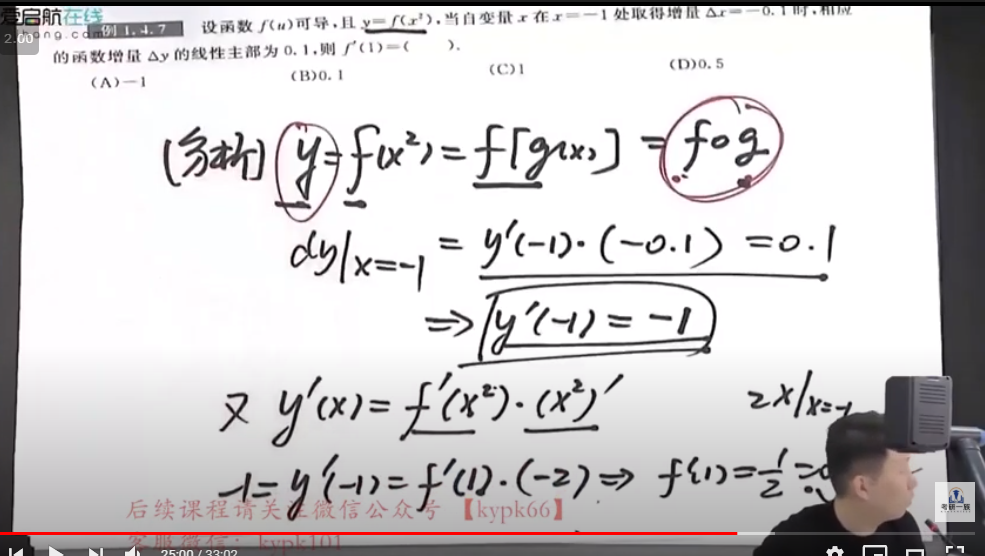 启航在线
hong.com
2.00
例 1.4.7 设函数 f(u)可导,且 y=f(x²),当自变量 x 在 x=-1 处取得增量 Δx=-0.1 时,相应
的函数增量 Δy 的线性主部为 0.1,则 f'(1)=( ).
(A)-1 (B)0.1 (C)1 (D)0.5
[分析] y=f(x²)=f[g(x)] = f∘g
dy|x=-1 = y'(-1)·(-0.1) =0.1
⇒ y'(-1) = -1
又 y'(x) = f'(x²)·(x²)' 2x|x=-1
-1= y'(-1)= f'(1)·(-2) ⇒ f'(1)=-1/2=
后续课程请关注微信公众号 【kypk66】
客服微信: kypk101
考研一族
25:00 / 33:02